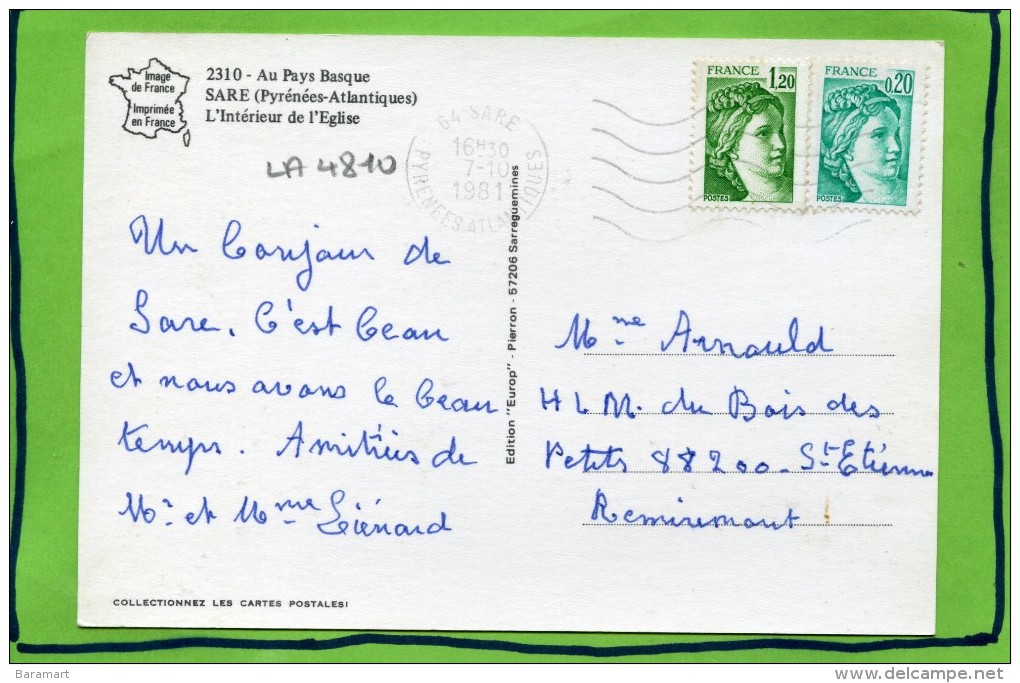 Image
de France
Imprimée
en France
2310 - Au Pays Basque
SARE (Pyrénées-Atlantiques)
L'Intérieur de l'Eglise
LA 4810
64 SARE
16H30
7-10
1981
PYRENEES ATLANTIQUES
FRANCE 1,20
POSTES
FRANCE 0,20
POSTES
Un bonjour de
Sare. C'est beau
et nous avons le beau
temps. Amitiés de
Mr et Mme Liénard
Edition "Europ" - Pierron - 57206 Sarreguemines
Mme Arnould
H L M. du Bois des
Petits 88200. St Etienne
Remiremont
COLLECTIONNEZ LES CARTES POSTALES!
Baramart
www.delcampe.net